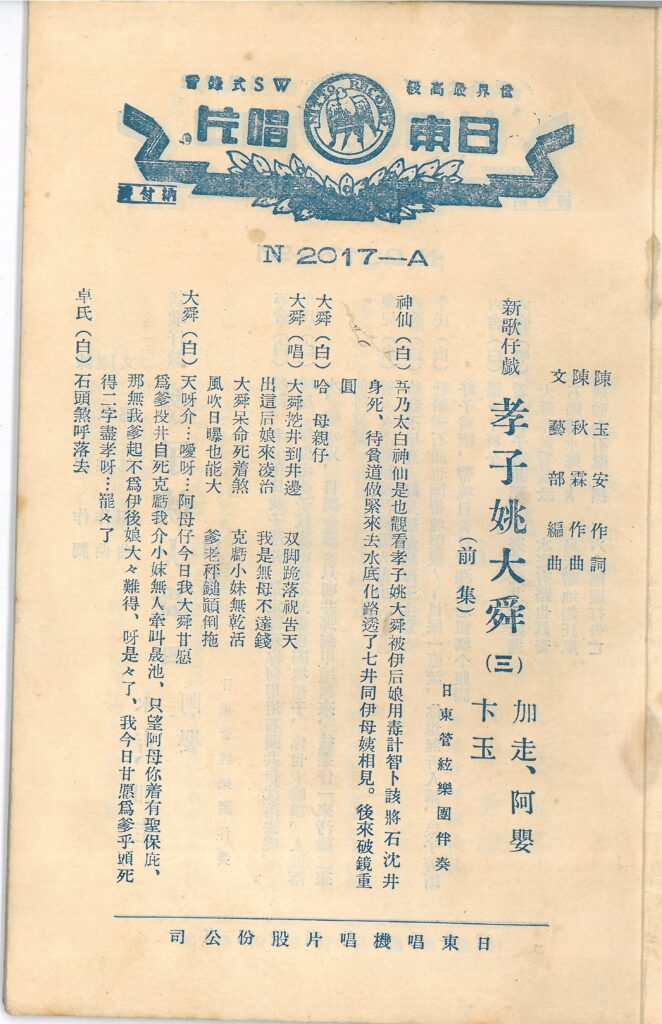 世界最高級 WS式錄音
NITTO RECORD
日東唱片
N 2017—A
陳玉安 作詞
陳秋霖 作曲
文藝部 編曲
新歌仔戲 孝子姚大舜(三) 加走、阿嬰
(前集) 卞玉
日東管絃樂團伴奏
神仙(白) 吾乃太白神仙是也觀看孝子姚大舜被伊后娘用毒計智卜該將石沈井
身死、待貧道做緊來去水底化路透了七井同伊母姨相見。後來破鏡重
圓
大舜(白) 哈 母親仔
大舜(唱) 大舜挖井到井邊 双脚跪落祝告天
出這后娘來凌治 我是無母不達錢
大舜呆命死着煞 克虧小妹無乾活
風吹日曝也能大 爹老秤鎚顚倒拖
大舜(白) 天呀介…噯呀…阿母仔今日我大舜甘愿
爲爹投井自死克虧我介小妹無人牽叫晟池、只望阿母你着有聖保庇、
那無我爹起不爲伊後娘大々難得、呀是々了、我今日甘愿爲爹乎頭死
得二字盡孝呀…罷々了
卓氏(白) 石頭煞呼落去
日東唱機唱片股份公司